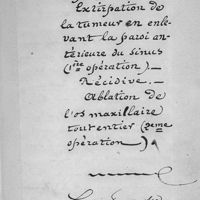 Extirpation de
la tumeur en enle-
vant la paroi an-
térieure du sinus
(1re opération).—
Récidive.—
Ablation de
l'os maxillaire
tout entier (2eme
opération).